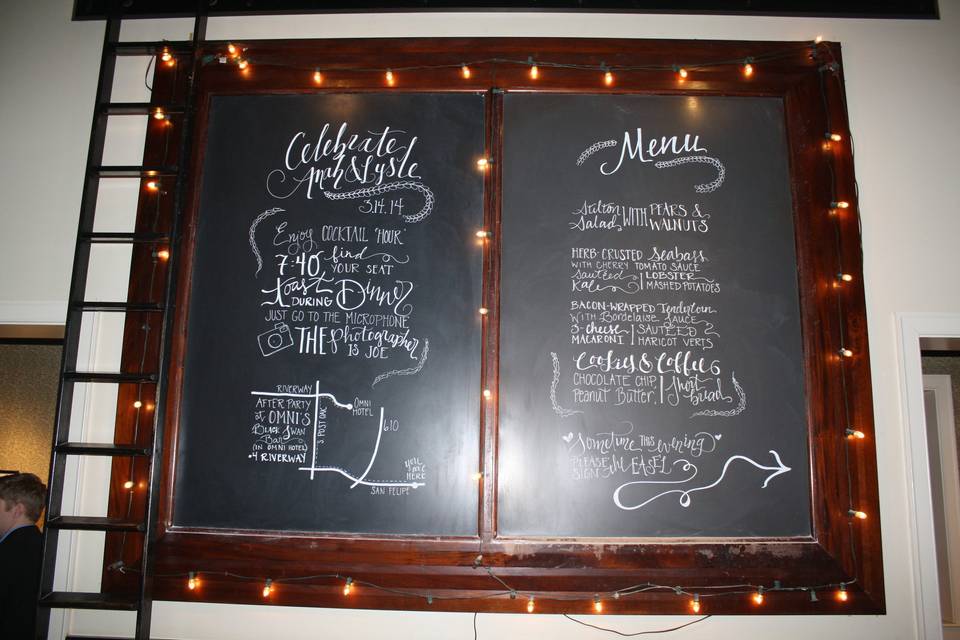 Celebrate
& Lysle
3.14.14
Enjoy COCKTAIL 'HOUR'
7:40 find
YOUR SEAT
toast DURING Dinner
JUST GO TO THE MICROPHONE
THE photographer
IS JOE
RIVERWAY
AFTER PARTY
at OMNI'S
BLACK SWAN
Bar
(IN OMNI HOTEL)
•4 RIVERWAY
S. POST OAK
OMNI
HOTEL
610
YOU
ARE
HERE
SAN FELIPE
Menu
Stilton
Salad WITH PEARS &
WALNUTS
HERB-CRUSTED Seabass
WITH CHERRY TOMATO SAUCE
Sautéed
Kale
LOBSTER
MASHED POTATOES
BACON-WRAPPED Tenderloin
WITH Bordelaise SAUCE
3-cheese
MACARONI
SAUTÉED
HARICOT VERTS
Cookies & Coffee
CHOCOLATE CHIP,
Peanut Butter,
Short
bread
Sometime THIS evening
PLEASE
SIGN the EASEL